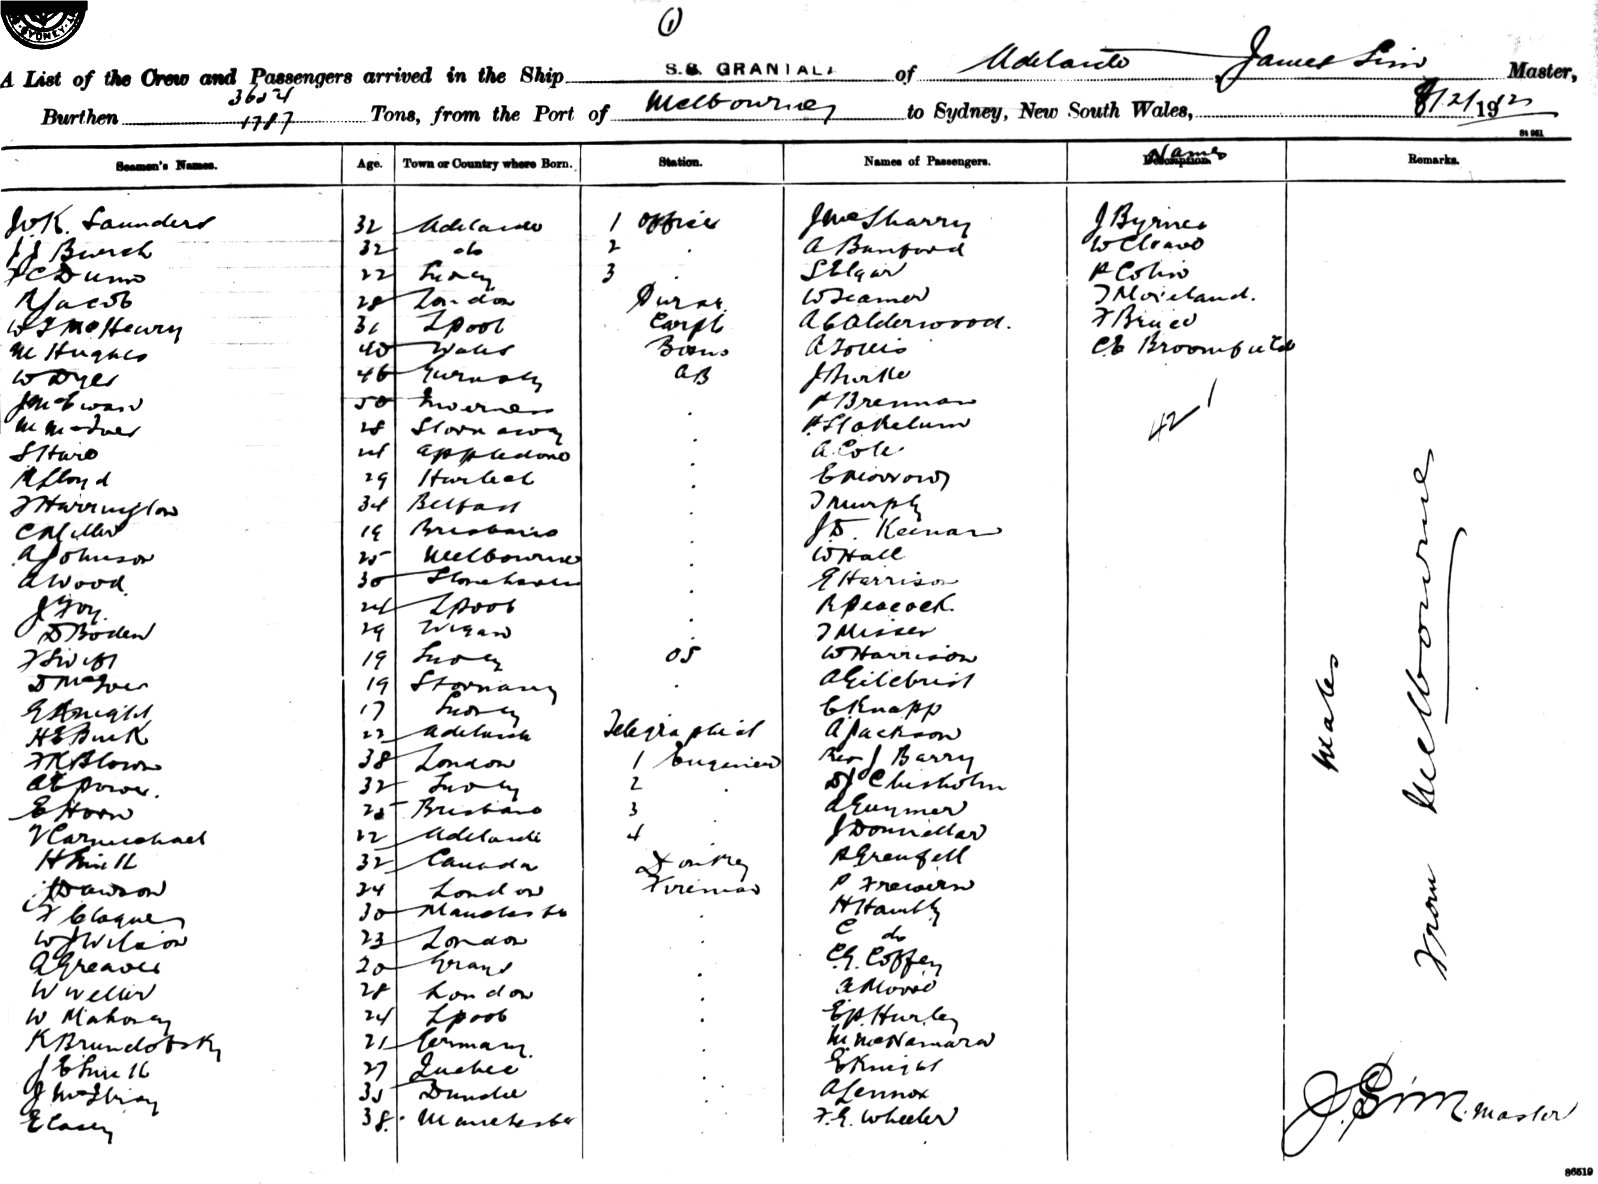 SYDNEY
(1)
A List of the Crew and Passengers arrived in the Ship S.S. GRANTALA of Adelaide James Sim Master,
Burthen 3654 1787 Tons, from the Port of Melbourne to Sydney, New South Wales, 8/2/1912
St 961
Seamen's Names. Age. Town or Country where Born. Station. Names of Passengers. Names Description. Remarks.
J.K. Saunders 32 Adelaide 1 Officer J McSharry J Byrnes
J J Burch 32 do 2 . A Banford W Cleave
F C Dunn 22 Sydney 3 . S Elgar P Colin
R Jacob 28 London W Seamer T Moreland.
W J McHenry 31 Lpool Carpt A C Alderwood. F Bruce
M Hughes 40 Wales Bosun A Follis C.E Broomfield
W Dyer 46 Gurnsey AB J Burke
J McEwan 50 Inverness . P Brennan
M McIver 28 Stornaway . P Stakelum 42
S Hare 28 Appledore . A. Cole
R Lloyd 29 Harlech . E Morrow
T Harrington 34 Belfast . T Murphy
C Miller 19 Brisbane . J D. Keenan
A Johnson 25 Melbourne . W Hall
A Wood 30 Stonehaven . G Harrison
J Foy 24 Lpool . R Peacock.
D Boden 29 Wigan . T Misser
F Swift 19 Sydney OS W Harrison
D McIver 19 Stornaway . A Gilchrist
G Knight 17 Sydney C Knapp
H E Buck 22 Adelaide Telegraphist A Jackson
F R Blown 38 London 1 Engineer Rev J Barry
A E Power. 32 Sydney 2 . D J Chisholm
E Horn 25 Brisbane 3 . A Guymer
V Carmichael 22 Adelaide 4 . J Donnellar
H Smith 32 Canada Donkey R Grenfell
J Dawson 24 London Fireman P Frewern
F Clague 30 Manchester . H Hambly
W J Wilson 23 London . C do
A Greaves 20 Grays . C.G. Coffey
W Weller 28 London . A Moore
W Mahoney 24 Lpool . E.P. Hurley
K Brundofsky 21 Germany. . M. McNamara
J E Smith 27 Quebec . E Knight
J McGhray 35 Dundee . A Lennox
E Casey 38. Manchester . F.G. Wheeler
Males
From Melbourne
J. Sim. Master
86519